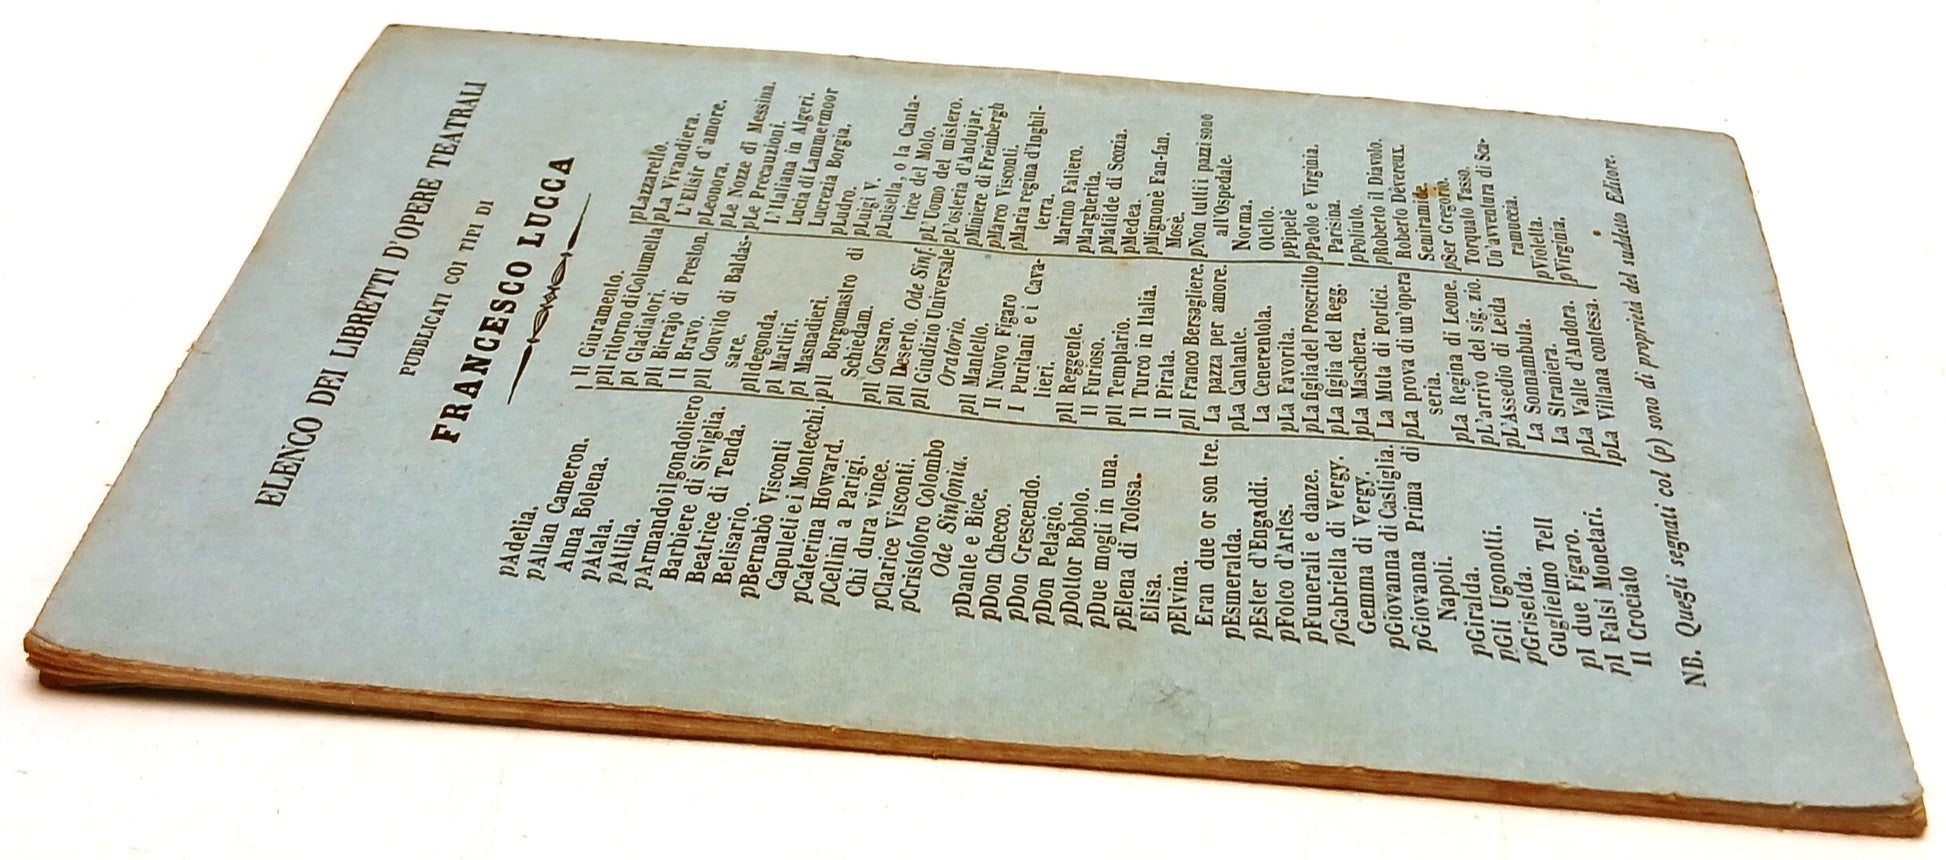 ELENCO DEI LIBRETTI D'OPERE TEATRALI
PUBBLICATI COI TIPI DI
FRANCESCO LUCCA
pAdelia.
pAllan Cameron.
Anna Bolena.
pAtala.
pAttila.
pArmando il gondoliero
Barbiere di Siviglia.
Beatrice di Tenda.
Belisario.
pBernabò Visconti
Capuleti e i Montecchi.
pCaterina Howard.
pCellini a Parigi.
Chi dura vince.
pClarice Visconti.
pCristoforo Colombo
Ode Sinfonia.
pDante e Bice.
pDon Checco.
pDon Crescendo.
pDon Pelagio.
pDottor Bobolo.
pDue mogli in una.
pElena di Tolosa.
Elisa.
pElvina.
Eran due or son tre.
pEsmeralda.
pEster d'Engaddi.
pFolco d'Arles.
pFunerali e danze.
pGabriella di Vergy.
Gemma di Vergy.
pGiovanna di Castiglia.
pGiovanna Prima di
Napoli.
pGiralda.
pGli Ugonotti.
pGriselda.
Guglielmo Tell
pI due Figaro.
pI Falsi Monetari.
Il Crociato
Il Giuramento.
pIl ritorno di Columella
pI Gladiatori.
pIl Birrajo di Preston.
Il Bravo.
pIl Convito di Baldas-
sare.
pIldegonda.
pI Martiri.
pI Masnadieri.
pIl Borgomastro di
Schiedam.
pIl Corsaro.
pIl Deserto. Ode Sinf.
pIl Giudizio Universale
Oratorio.
pIl Mantello.
Il Nuovo Figaro
I Puritani e i Cava-
lieri.
pIl Reggente.
Il Furioso.
pIl Templario.
Il Turco in Italia.
Il Pirata.
pIl Franco Bersagliere.
La pazza per amore.
pLa Cantante.
La Cenerentola.
pLa Favorita.
pLa figlia del Proscritto
pLa figlia del Regg.
pLa Maschera.
La Muta di Portici.
pLa prova di un'opera
seria.
pLa Regina di Leone.
pL'arrivo del sig. zio.
pL'Assedio di Leida
La Sonnambula.
La Straniera.
pLa Valle d'Andora.
pLa Villana contessa.
pLazzarello.
pLa Vivandiera.
L'Elisir d'amore.
pLeonora.
pLe Nozze di Messina.
pLe Precauzioni.
L'Italiana in Algeri.
Lucia di Lammermoor
Lucrezia Borgia.
pLudro.
pLuigi V.
pLuisella, o la Canta-
trice del Molo.
pL'Uomo del mistero.
pL'osteria d'Andujar.
pMiniere di Freinbergh
pMarco Visconti.
pMaria regina d'Inghil-
terra.
Marino Faliero.
pMargherita.
pMatilde di Scozia.
pMedea.
pMignonè Fan-fan.
Mosè.
pNon tutti i pazzi sono
all'Ospedale.
Norma.
Otello.
pPipelè
pPaolo e Virginia.
Parisina.
pPoliuto.
pRoberto il Diavolo.
Roberto Devereux.
Semiramide.
pSer Gregorio.
Torquato Tasso.
Un'avventura di Sca-
ramuccia.
pVioletta.
pVirginia.
NB. Quegli segnati col (p) sono di proprietà del suddato Editore.